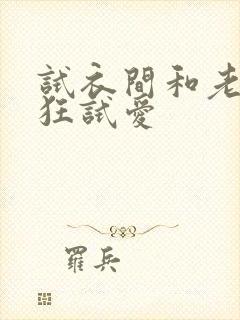 試衣間和老
狂試愛
羅兵